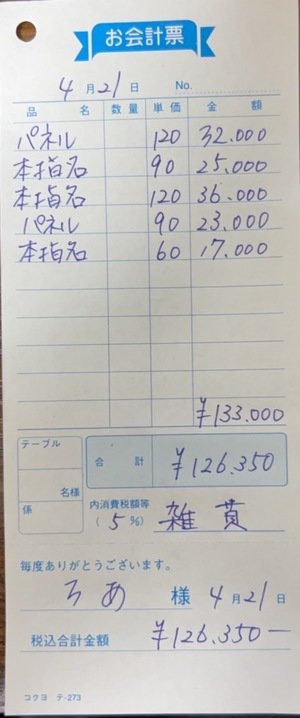 お会計票
4月21日 No.
品名 数量 単価 金額
パネル 120 32.000
本指名 90 25.000
本指名 120 36.000
パネル 90 23.000
本指名 60 17.000
¥133.000
テーブル
名様
係
合計 ¥126.350
内消費税額等
(5%) 雑費
毎度ありがとうございます。
ろあ 様 4月21日
税込合計金額 ¥126.350ー
コクヨ テ-273